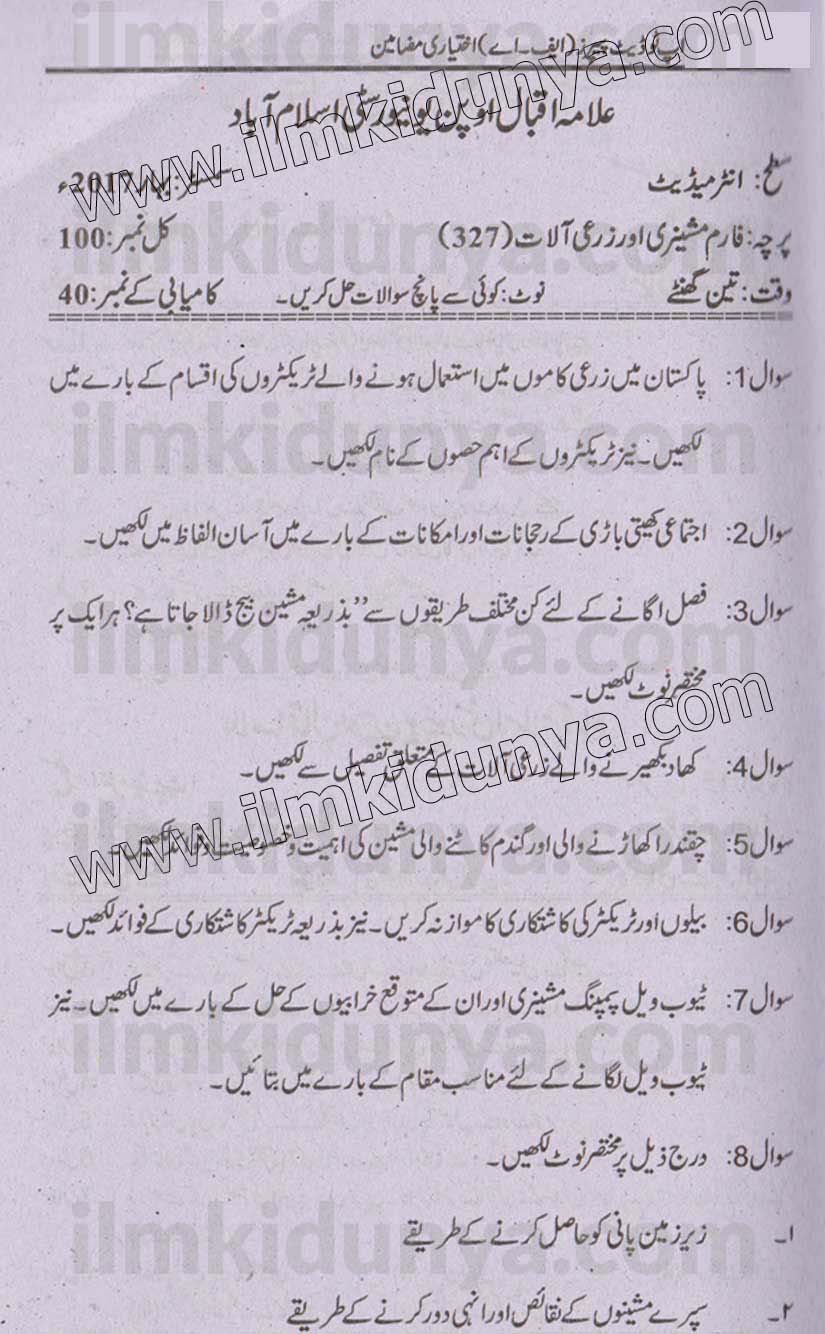 اپ ٹو ڈیٹ پیپرز (ایف۔اے) اختیاری مضامین
علامہ اقبال اوپن یونیورسٹی اسلام آباد
سطح: انٹرمیڈیٹ سمسٹر: بہار 2017ء
پرچہ: فارم مشینری اور زرعی آلات (327) کل نمبر: 100
وقت: تین گھنٹے نوٹ: کوئی سے پانچ سوالات حل کریں۔ کامیابی کے نمبر: 40
سوال 1: پاکستان میں زرعی کاموں میں استعمال ہونے والے ٹریکٹروں کی اقسام کے بارے میں
لکھیں۔ نیز ٹریکٹروں کے اہم حصوں کے نام لکھیں۔
سوال 2: اجتماعی کھیتی باڑی کے رجحانات اور امکانات کے بارے میں آسان الفاظ میں لکھیں۔
سوال 3: فصل اگانے کے لئے کن مختلف طریقوں سے ’’بذریعہ مشین بیج ڈالا جاتا ہے؟ ہر ایک پر
مختصر نوٹ لکھیں۔
سوال 4: کھاد بکھیرنے والے زرعی آلات کے متعلق تفصیل سے لکھیں۔
سوال 5: چقندر اکھاڑنے والی اور گندم کاٹنے والی مشین کی اہمیت و خصوصیت و فوائد لکھیں۔
سوال 6: بیلوں اور ٹریکٹر کی کاشتکاری کا موازنہ کریں۔ نیز بذریعہ ٹریکٹر کاشتکاری کے فوائد لکھیں۔
سوال 7: ٹیوب ویل پمپنگ مشینری اور ان کے متوقع خرابیوں کے حل کے بارے میں لکھیں۔ نیز
ٹیوب ویل لگانے کے لئے مناسب مقام کے بارے میں بتائیں۔
سوال 8: درج ذیل پر مختصر نوٹ لکھیں۔
۱۔ زیر زمین پانی کو حاصل کرنے کے طریقے
۲۔ سپرے مشینوں کے نقائص اور انہی دور کرنے کے طریقے
www.ilmkidunya.com
www.ilmkidunya.com
ilmkidunya.com
ilmkidunya.com
ilmkidunya.com
ilmkidunya.com
ilmkidunya.com
ilmkidunya.com